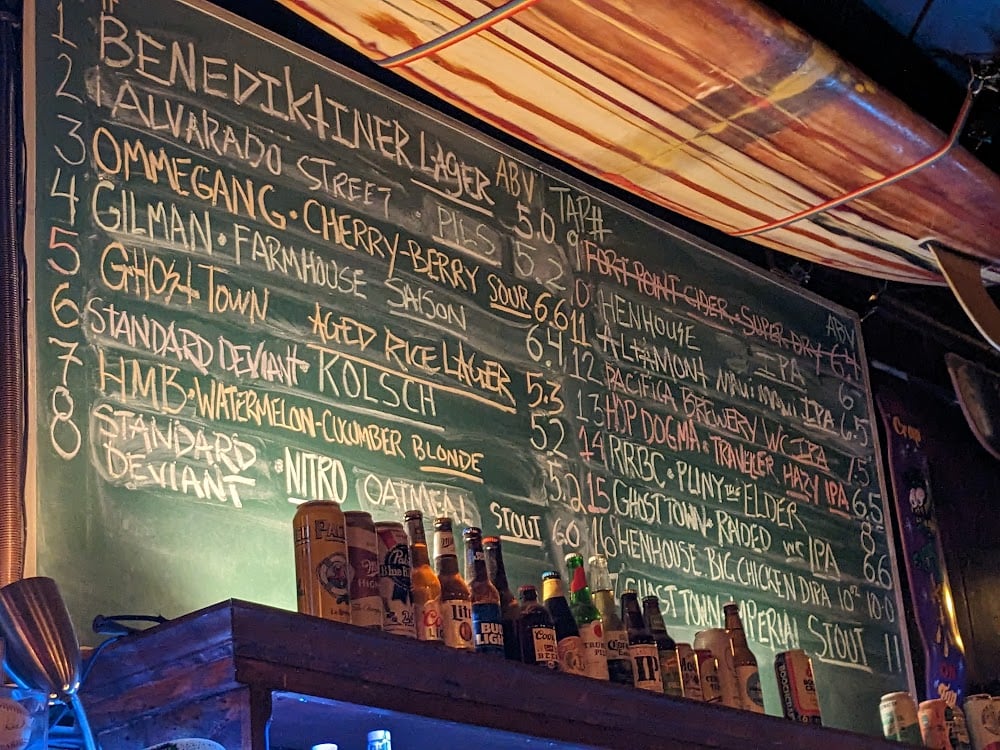 #
ABV
1 BENEDIKTINER LAGER 5.0
2 ALVARADO STREET PILS 5.2
3 OMMEGANG · CHERRY-BERRY SOUR 6.6
4 GILMAN · FARMHOUSE SAISON 6.4
5 GHOST TOWN AGED RICE LAGER 5.3
6 STANDARD DEVIANT · KOLSCH 5.2
7 HMB · WATERMELON-CUCUMBER BLONDE 5.2
8 STANDARD DEVIANT · NITRO OATMEAL STOUT 6.0
TAP# ABV
9 FORT POINT CIDER · SUPER DRY 6.4
10 HENHOUSE IPA 6
11 ALTAMONT MAUI WAUI IPA 6.5
12 PACIFICA BREWERY WC IPA 7.5
13 HOP DOGMA · TRAVELER HAZY IPA 6.5
14 RRBC · PLINY THE ELDER 8
15 GHOST TOWN · RAIDED WC IPA 6.6
16 HENHOUSE · BIG CHICKEN DIPA 10oz 10.0
GHOST TOWN · IMPERIAL STOUT 11
Pabst
Blue Ribbon
Lite
BUD
LIGHT
Coors